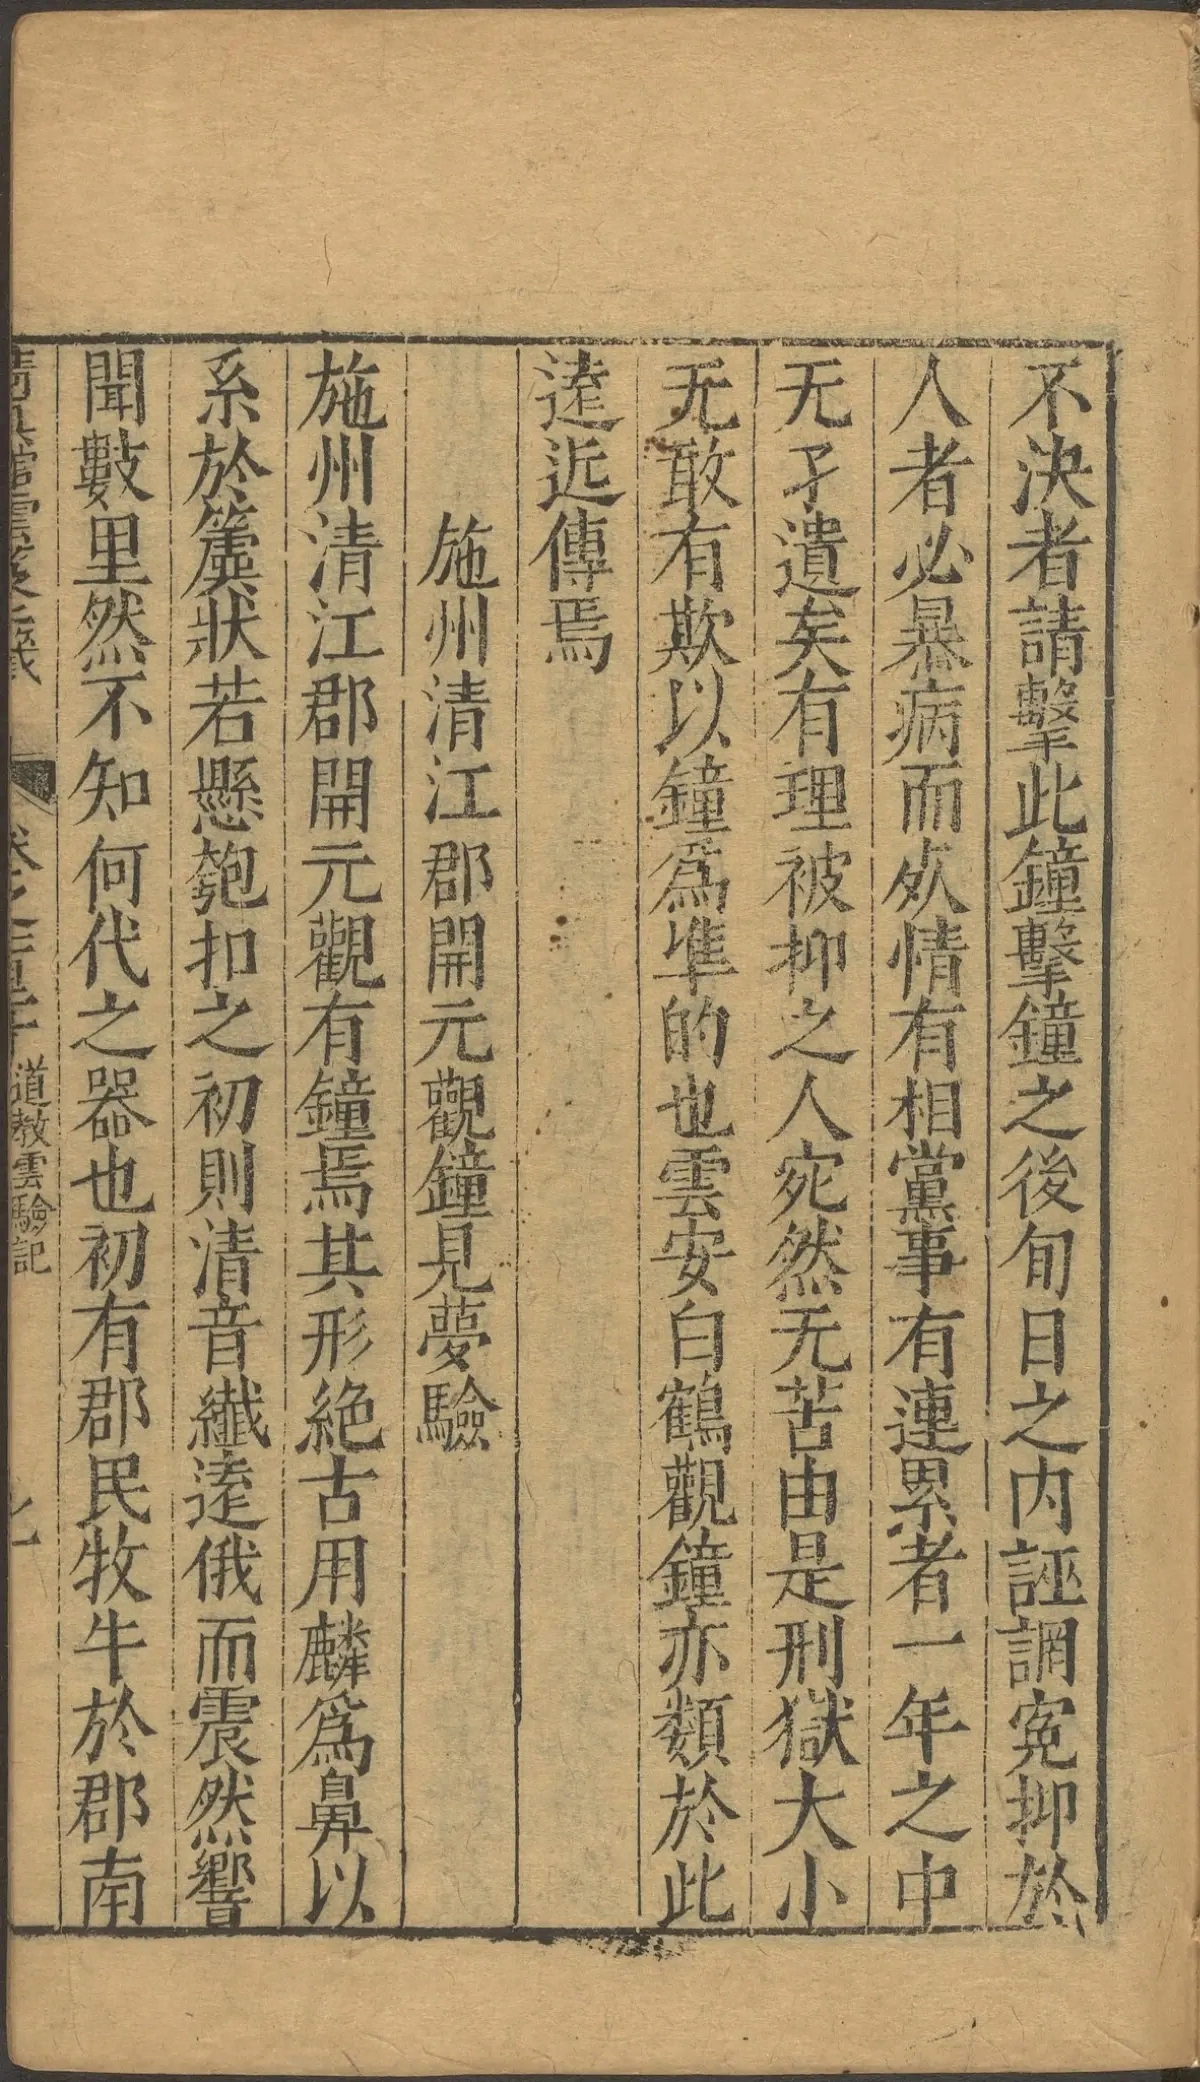 不決者請擊此鐘擊鐘之後旬日之内誣誷寃抑於
人者必暴病而㱙情有相黨事有連累者一年之中
无孑遺矣有理被抑之人宛然无苦由是刑獄大小
无敢有欺以鐘爲凖的也雲安白鶴觀鐘亦類於此
逺近傳焉
施州清江郡開元觀鐘見夢驗
施州清江郡開元觀有鐘焉其形絶古用麟爲鼻以
系於簴狀若懸匏扣之初則清音纖逺俄而震然響
聞數里然不知何代之器也初有郡民牧牛於郡南
道教雲驗記